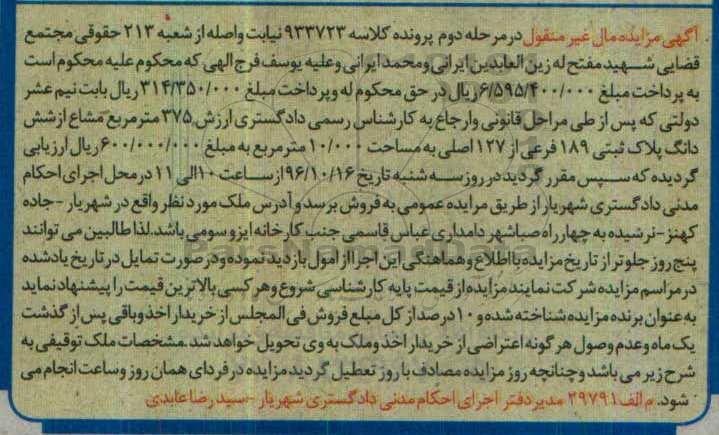 آگهی مزایده مال غیر منقول در مرحله دوم پرونده کلاسه ۹۳۳۷۲۳ نیابت واصله از شعبه ۲۱۳ حقوقی مجتمع
قضایی شهید مفتح له زین العابدین ایرانی ومحمد ایرانی وعلیه یوسف فرج الهی که محکوم علیه محکوم است
به پرداخت مبلغ ۶/۵۹۵/۴۰۰/۰۰۰ریال در حق محکوم له وپرداخت مبلغ ۳۱۴/۳۵۰/۰۰۰ ریال بابت نیم عشر
دولتی که پس از طی مراحل قانونی وارجاع به کارشناس رسمی دادگستری ارزش ۳۷۵ مترمربع مشاع ازشش
دانگ پلاک ثبتی ۱۸۹ فرعی از ۱۲۷ اصلی به مساحت ۱۰/۰۰۰ مترمربع به مبلغ ۶۰۰/۰۰۰/۰۰۰ریال ارزیابی
گردیده که سپس مقرر گردید در روز سه شنبه تاریخ ۹۶/۱۰/۱۶ از ساعت ۱۰الی ۱۱ در محل اجرای احکام
مدنی دادگستری شهریار از طریق مزایده عمومی به فروش برسد و آدرس ملک مورد نظر واقع در شهریار - جاده
کهنز - نرشیده به چهارراه صباشهر دامداری عباس قاسمی جنب کارخانه ایزو سومی باشد.لذا طالبین می توانند
پنج روز جلوتر از تاریخ مزایده با اطلاع وهماهنگی این اجرا از امول بازدید نموده ودرصورت تمایل درتاریخ یادشده
در مراسم مزایده شرکت نمایند مزایده از قیمت پایه کارشناسی شروع وهر کسی بالاترین قیمت را پیشنهاد نماید
به عنوان برنده مزایده شناخته شده و ۱۰ درصد از کل مبلغ فروش فی المجلس از خریدار اخذ وباقی پس از گذشت
یک ماه وعدم وصول هر گونه اعتراضی از خریدار اخذ وملک به وی تحویل خواهد شد.مشخصات ملک توقیفی به
شرح زیر می باشد و چنانچه روز مزایده مصادف با روز تعطیل گردید مزایده در فردای همان روز وساعت انجام می
شود. م الف ۲۹۷۹۱ مدیر دفتر اجرای احکام مدنی دادگستری شهریار - سید رضا عابدی